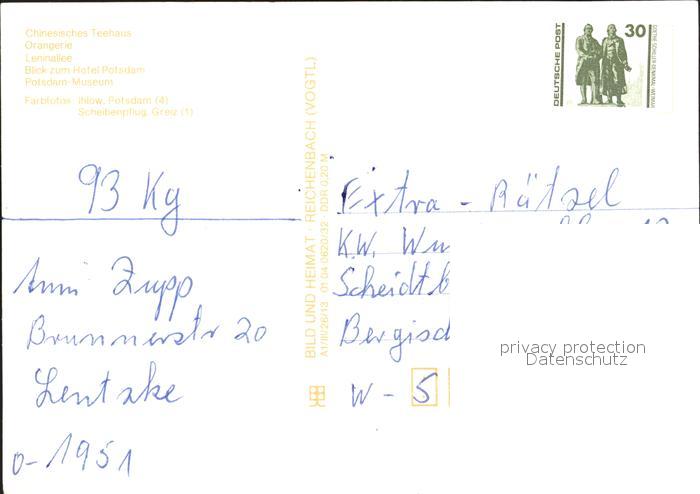 Chinesisches Teehaus
Orangerie
Leninallee
Blick zum Hotel Potsdam
Potsdam-Museum
Farbfotos: Ihlow, Potsdam (4)
Scheibenpflug, Greiz (1)
BILD UND HEIMAT · REICHENBACH (VOGTL)
A1/III/26/13 01 04 0620/32 · DDR 0,20 M
DEUTSCHE POST
30
GOETHE-SCHILLER-DENKMAL WEIMAR
93 Kg
Anni Zupp
Brunnenstr 20
Lentzke
O-1951
Extra-Rätsel
K.W. Wu
Scheidtb
Bergisc
W-5
privacy protection
Datenschutz